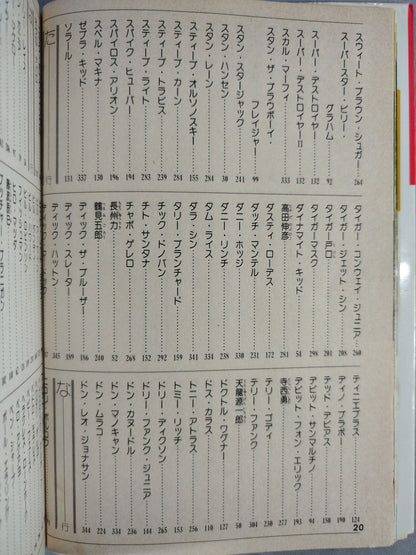 スウィート・ブラウン・シュガー 264
スーパースター・ビリー・
グラハム 92
スーパー・デストロイヤー 132
スーパー・デストロイヤーII 132
スカル・マーフィ 333
スタン・ザ・プラウボーイ・
フレイジャー 99
スタン・スタージャック 241
スタン・ハンセン 30
スタン・レーン 284
スティーブ・オルソノスキー 155
スティーブ・カーン 284
スティーブ・トラビス 239
スティーブ・ライト 283
スパイク・ヒューバー 194
スパイロス・アリオン 196
スペル・マキナ 130
ゼブラ・キッド 337
ソラール 131
た行
タイガー・コンウェイ・ジュニア 260
タイガー・ジェット・シン 208
タイガー戸口 201
タイガーマスク 298
ダイナマイト・キッド 54
高田伸彦 281
ダスティ・ローデス 172
ダッチ・マンテル 231
ダニー・ホッジ 330
ダニー・リンチ 334
タム・ライス 331
ダラ・シン 341
タリー・ブランチャード 159
チック・ドノバン 292
チト・サンタナ 152
チャボ・ゲレロ 268
長州力 52
鶴見五郎 240
ディック・ザ・ブルーザー 186
ディック・スレーター 189
ディック・ハットン 345
ティニエブラス 124
ディノ・ブラボー 190
テッド・デビアス 150
デビット・サンマルチノ 94
デビット・フォン・エリック 193
寺西勇 277
テリー・ゴディ 230
テリー・ファンク 304
天龍源一郎 50
ドクトル・ワグナー 127
ドス・カラス 110
トニー・アトラス 256
トミー・リッチ 153
ドリー・ディクソン 265
ドリー・ファンク・ジュニア 293
ドン・カヌードル 144
ドン・マノキャン
ドン・ムラコ 224
ドン・レオ・ジョナサン 344
な行
20